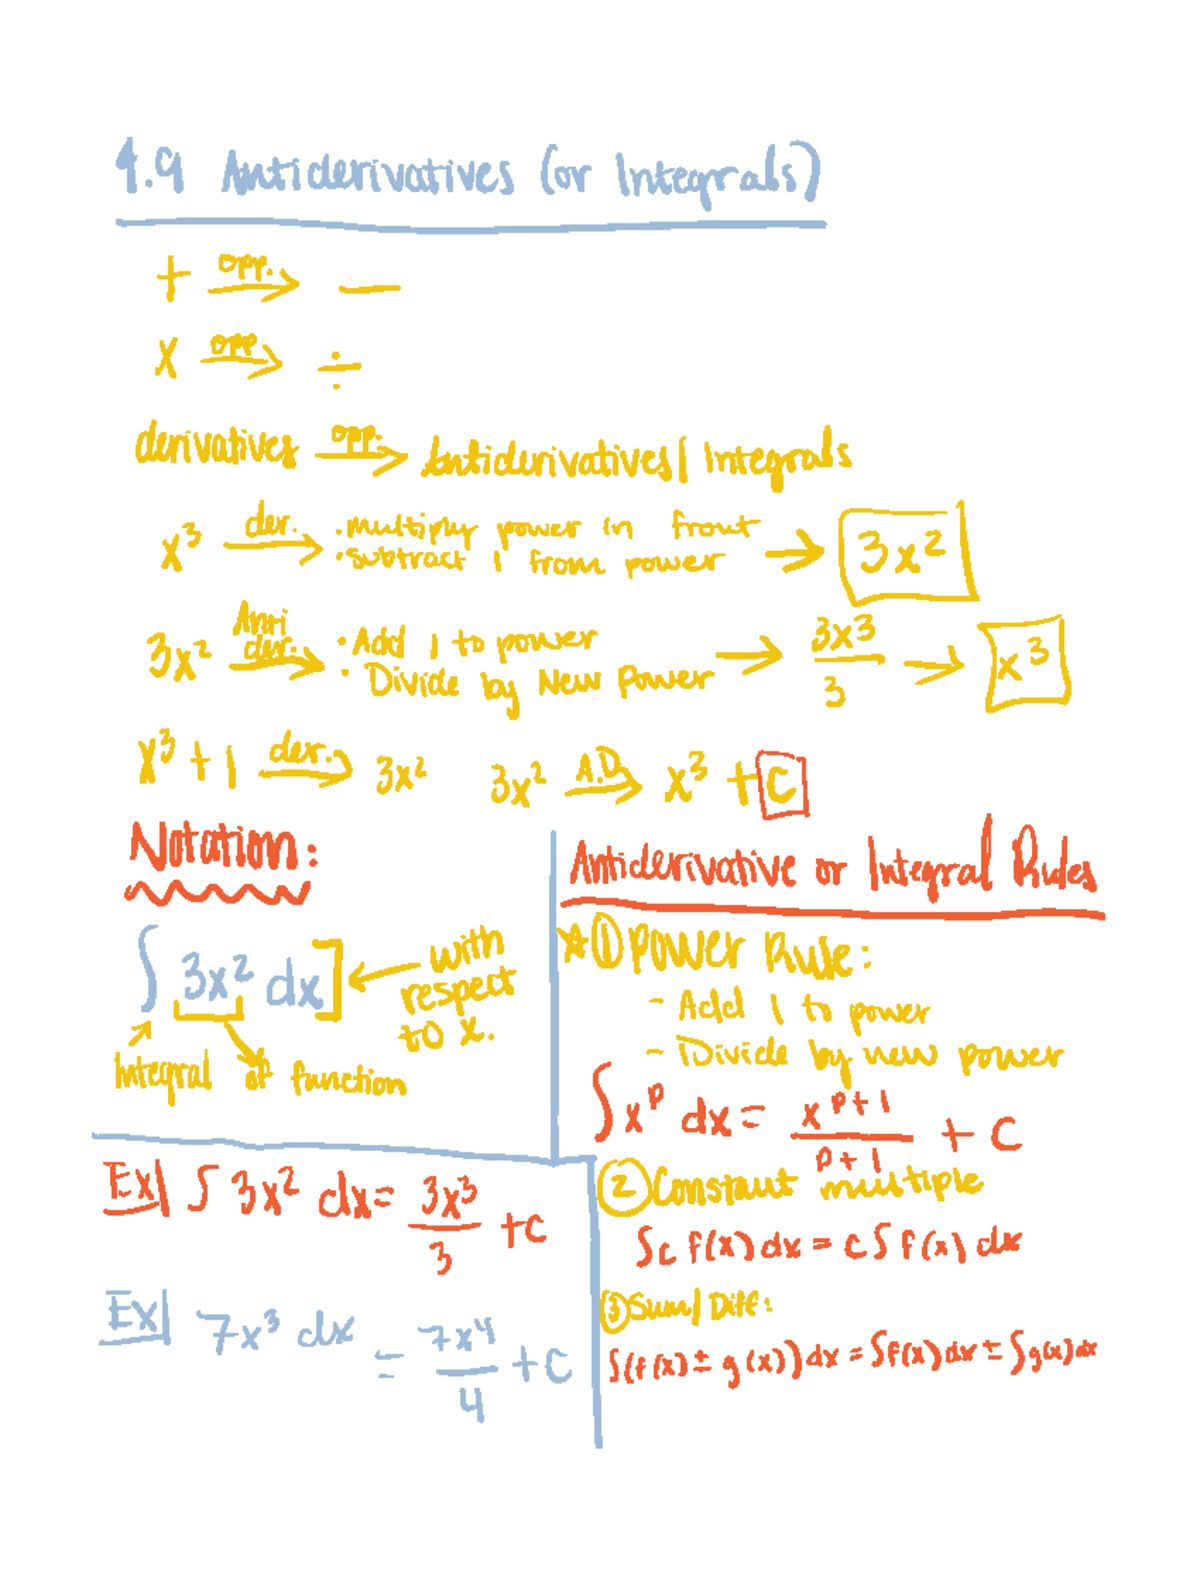 4.9 Antiderivatives (or Integrals)
+ opp. → −
x opp → ÷
derivatives opp. → Antiderivatives/Integrals
x³ der. → · multiply power in front · subtract 1 from power → 3x²
3x² Anti der. → · Add 1 to power · Divide by New Power → 3x³/3 → x³
x³ + 1 der. → 3x² 3x² A.D. → x³ + C
Notation:
∫ 3x² dx] ← with respect to x.
Integral of function
Ex| ∫ 3x² dx = 3x³/3 + C
Ex| 7x³ dx = 7x⁴/4 + C
Antiderivative or Integral Rules
☆① Power Rule:
- Add 1 to power
- Divide by new power
∫ xᵖ dx = xᵖ⁺¹/p+1 + C
② Constant multiple
∫c f(x) dx = c ∫ f(x) dx
③ Sum/Diff:
∫(f(x) ± g(x)) dx = ∫f(x) dx ± ∫g(x) dx